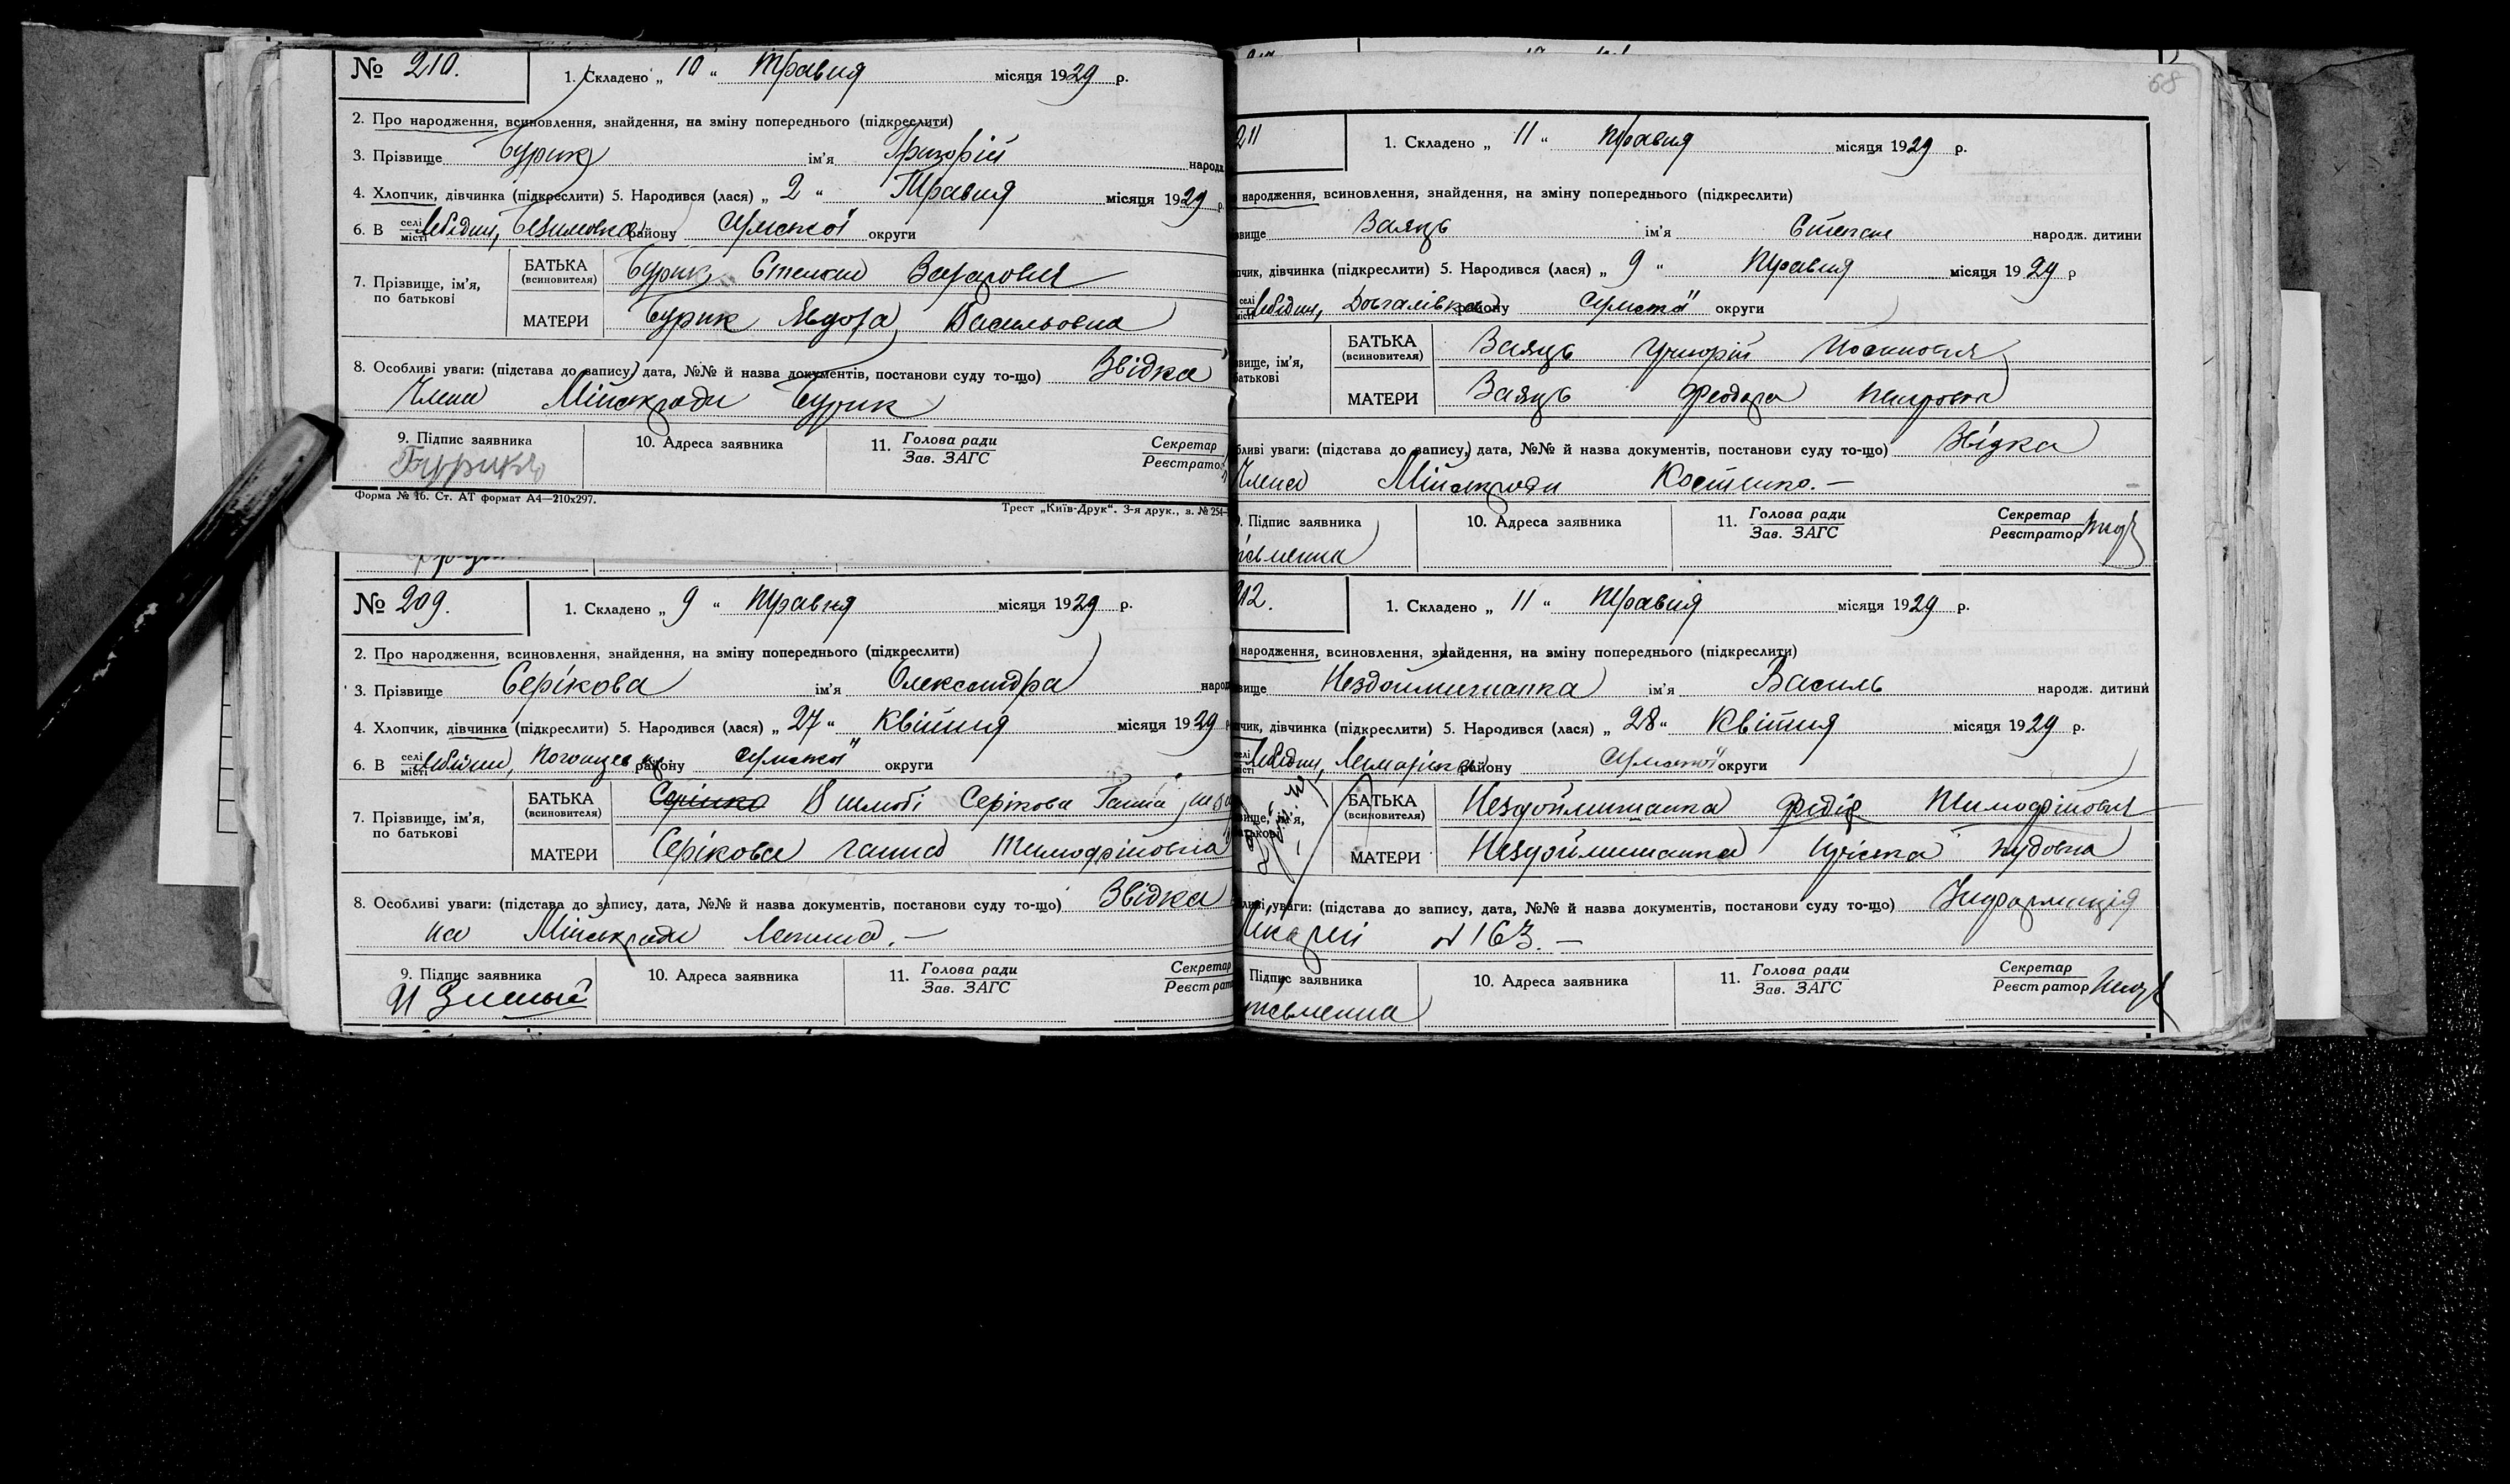 № 210. 1. Складено „ 10 “ Травня місяця 1929 р.
2. Про народження, всиновлення, знайдення, на зміну попереднього (підкреслити)
3. Прізвище Бурик ім’я Григорій народ
4. Хлопчик, дівчинка (підкреслити) 5. Народився (лася) „ 2 “ Травня місяця 1929 р.
6. В селі місті Лебідин, району Сумської округи
7. Прізвище, ім’я, по батькові
БАТЬКА (всиновителя) Бурик Степан
МАТЕРИ Бурик Явдоха Васильовна
8. Особливі уваги: (підстава до запису, дата, №№ й назва документів, постанови суду то-що) Звідка
Члена Міськради Бурик
9. Підпис заявника 10. Адреса заявника 11. Голова ради Зав. ЗАГС Секретар Реєстратор
Бурикъ
Форма № 16. Ст. АТ формат А4—210x297.
Трест „Київ-Друк“. 3-я друк., з. № 254—
№ 209. 1. Складено „ 9 “ Травня місяця 1929 р.
2. Про народження, всиновлення, знайдення, на зміну попереднього (підкреслити)
3. Прізвище Серікова ім’я Олександра народ
4. Хлопчик, дівчинка (підкреслити) 5. Народився (лася) „ 27 “ Квітня місяця 1929 р
6. В селі місті Лебідин, району Сумської округи
7. Прізвище, ім’я, по батькові
БАТЬКА (всиновителя) В шлюбі Серікова Ганна
МАТЕРИ Серікова Ганна Тимофійовна
8. Особливі уваги: (підстава до запису, дата, №№ й назва документів, постанови суду то-що) Звідка
Міськради
9. Підпис заявника 10. Адреса заявника 11. Голова ради Зав. ЗАГС Секретар Реєстрат
68
211 1. Складено „ 11 “ Травня місяця 1929 р.
народження, всиновлення, знайдення, на зміну попереднього (підкреслити)
звище Заяць ім’я Степан народж. дитини
пчик, дівчинка (підкреслити) 5. Народився (лася) „ 9 “ Травня місяця 1929 р
селі місті Лебідин, Довгалівка району Сумської округи
звище, ім’я, батькові
БАТЬКА (всиновителя) Заяць Григорій Йосипович
МАТЕРИ Заяць Феодора Петровна
бливі уваги: (підстава до запису, дата, №№ й назва документів, постанови суду то-що) Звідка
Члена Міськради Костенко.—
9. Підпис заявника 10. Адреса заявника 11. Голова ради Зав. ЗАГС Секретар Реєстратор
исьменна
212. 1. Складено „ 11 “ Травня місяця 1929 р.
народження, всиновлення, знайдення, на зміну попереднього (підкреслити)
звище Нездоймишапка ім’я Василь народж. дитини
пчик, дівчинка (підкреслити) 5. Народився (лася) „ 28 “ Квітня місяця 1929 р.
селі місті Лебідин, району Сумської округи
звище, ім’я, батькові
БАТЬКА (всиновителя) Нездоймишапка Федір Тимофійович
МАТЕРИ Нездоймишапка
ливі уваги: (підстава до запису, дата, №№ й назва документів, постанови суду то-що) Інформація
Лікарні № 163.—
Підпис заявника 10. Адреса заявника 11. Голова ради Зав. ЗАГС Секретар Реєстратор
исьменна